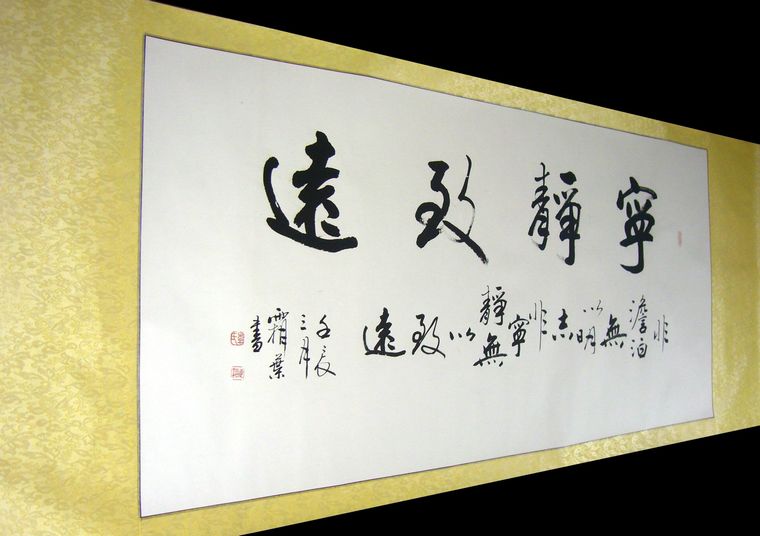 寧靜致遠
非澹泊無以明志非寧靜無以致遠
壬辰
三月
霜葉
書